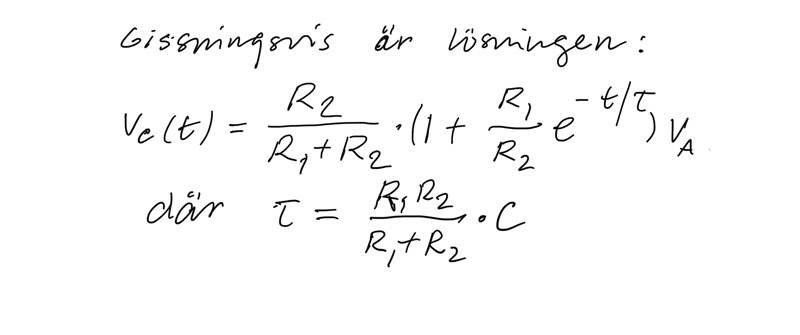 Gissningsvis är lösningen:
V_c(t) = \frac{R_2}{R_1+R_2} \cdot (1 + \frac{R_1}{R_2} e^{-t/τ}) V_A
där τ = \frac{R_1 R_2}{R_1+R_2} \cdot C